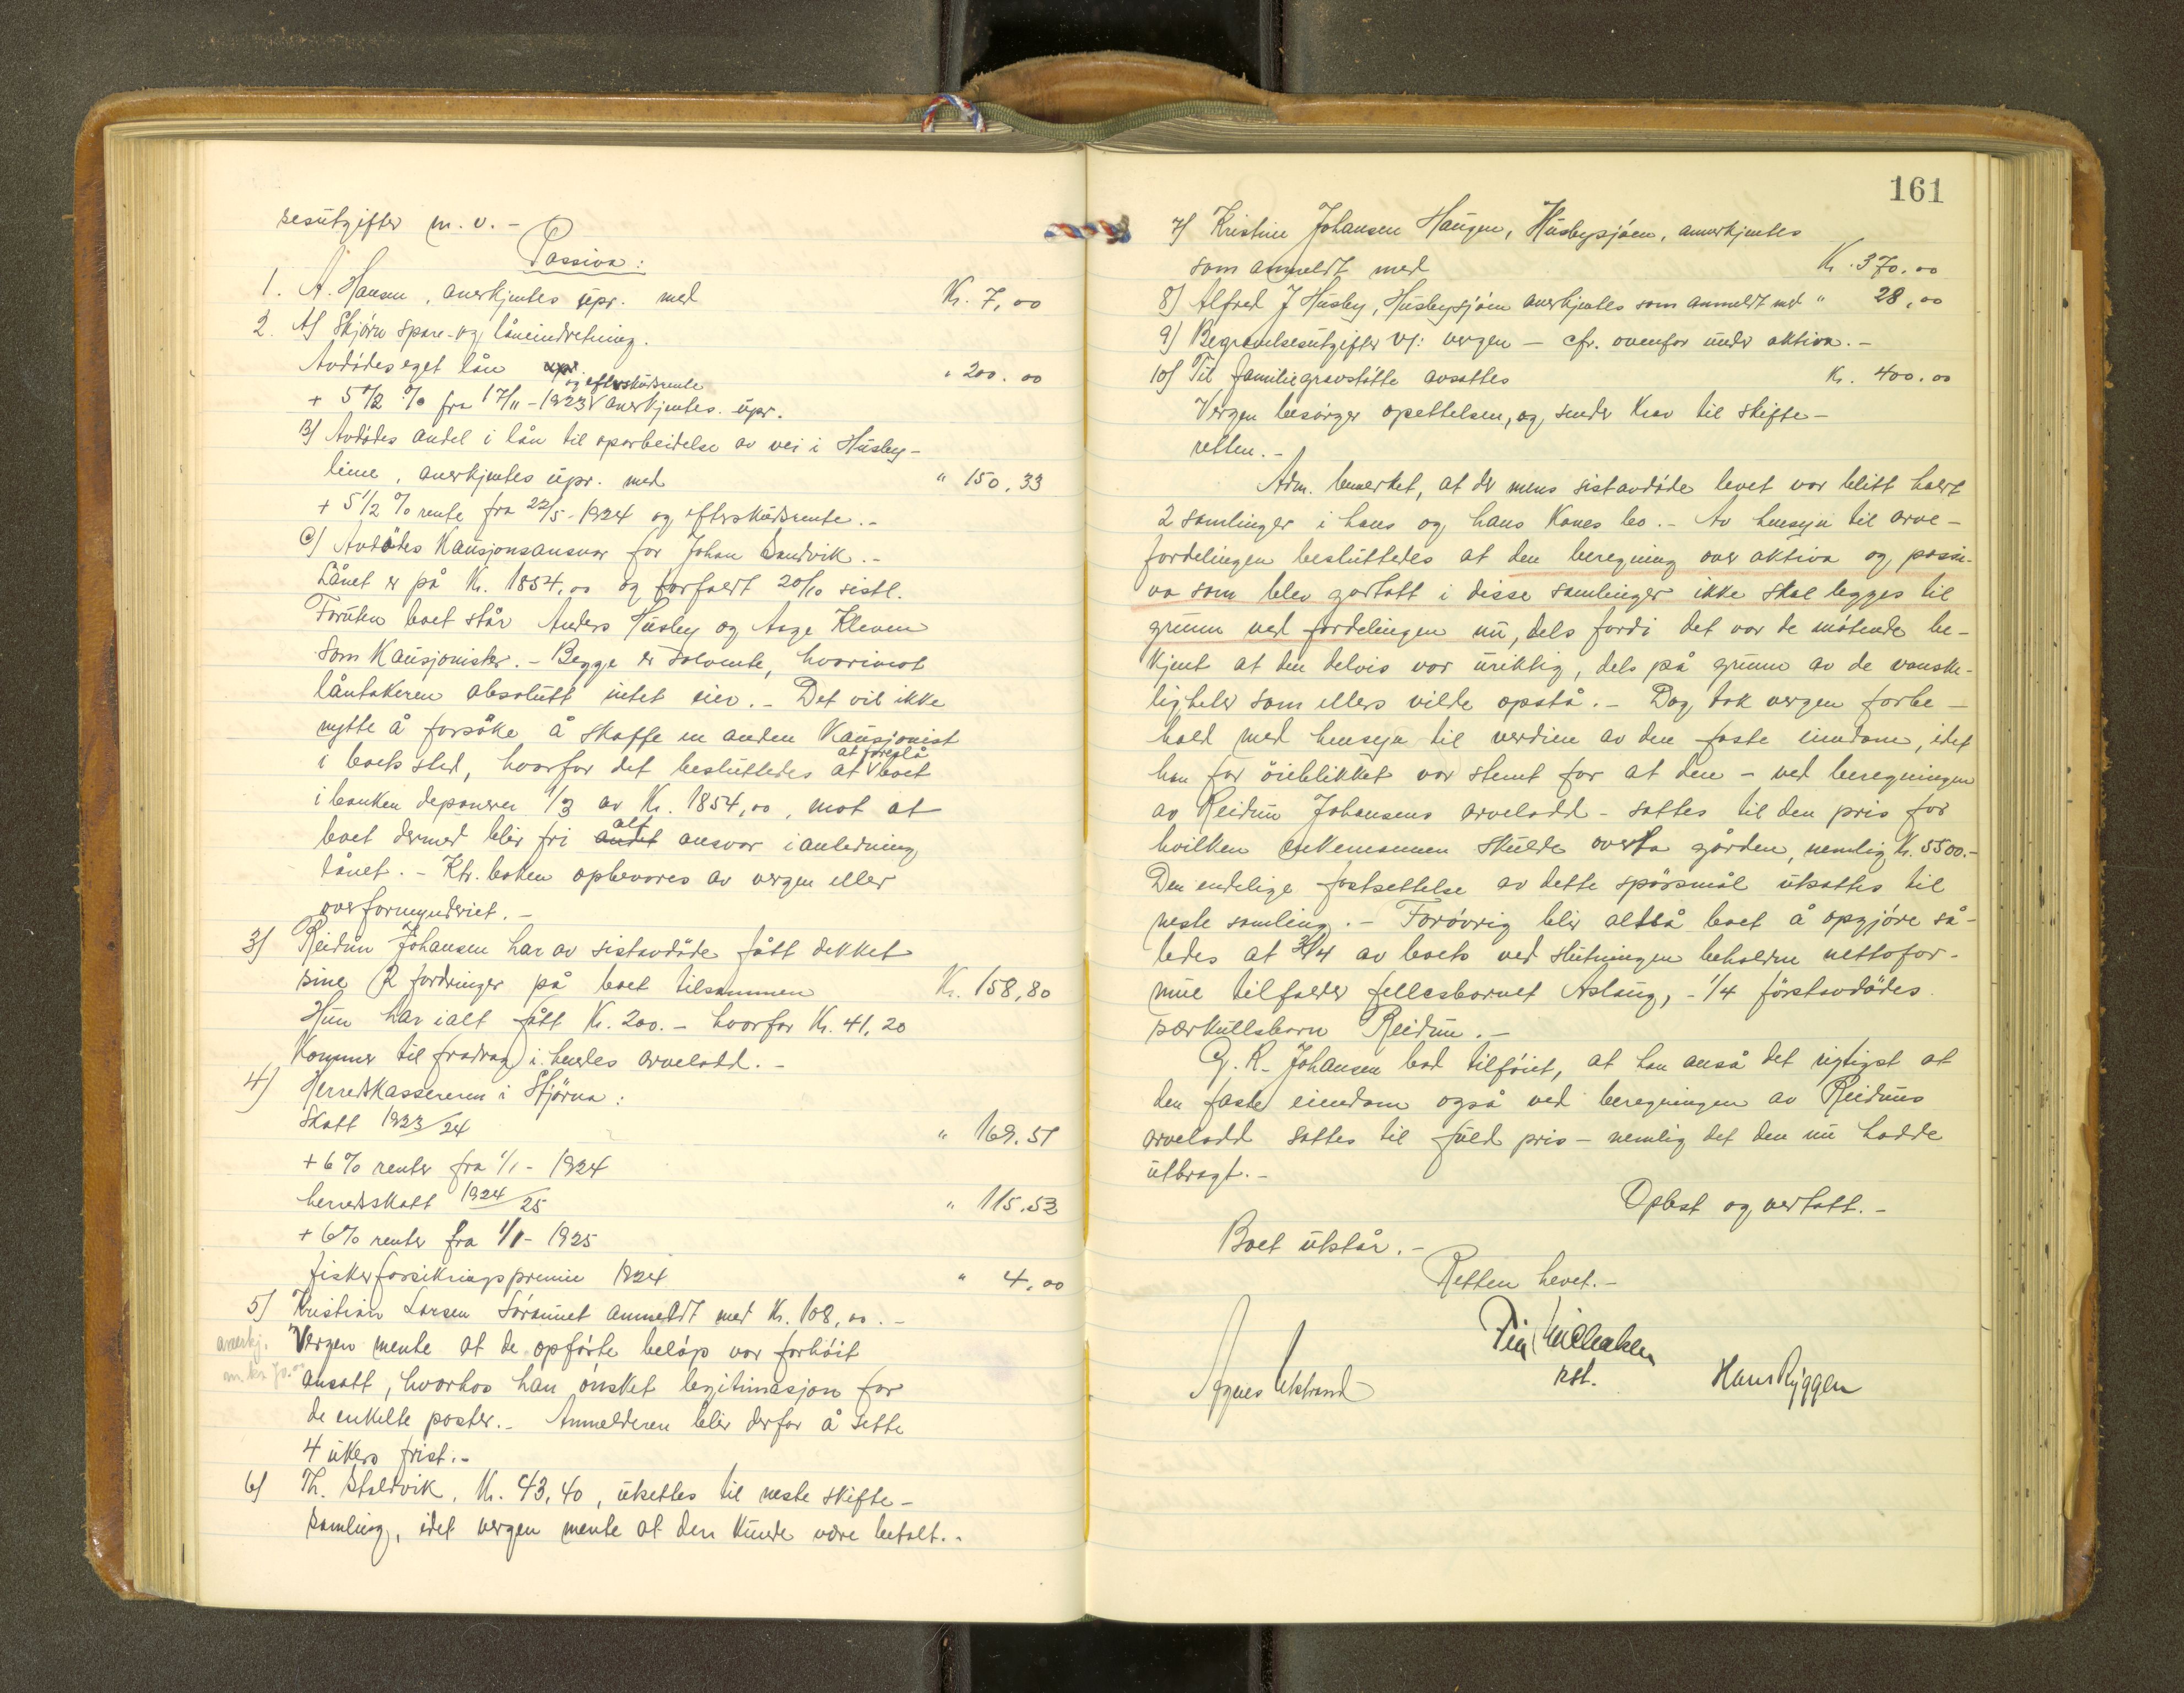 sesutgifter m. v. -
Passiva:
1. A. Hansen, anerkjentes upr. med Kr. 7,00
2. A) Skjörn spare- og låneindretning.
Avdödes eget lån " 200.00
og efterskudsrente
+ 5 1/2 % fra 17/11 - 1923 anerkjentes upr.
B) Avdödes andel i lån til oparbeidelse av vei i Husby-
liene, anerkjentes upr. med " 150,33
+ 5 1/2 % rente fra 22/5 - 1924 og efterskudsrente. -
C) Avdödes Kausjonsansvar for Johan Sandvik. -
Lånet er på Kr. 1854,00 og forfaldt 20/10 sistl.
Foruten boet står Anders Husby og Aage Kleven
som Kausjonister. - Begge er solvente, hvorimot
låntakeren absolutt intet eier. - Det vil ikke
nytte å forsöke å skaffe en anden Kausjonist
at foreslå
i boets sted, hvorfor det besluttedes at boet
i banken deponerer 1/3 av Kr. 1854,00, mot at
alt
boet dermed blir fri andet ansvar i anledning
lånet. - Ktr. boken opbevares av vergen eller
overformynderiet. -
3) Reidun Johansen har av sistavdöde fått dekket
sine 2 fordringer på boet tilsammen Kr. 158,80
Hun har ialt fått Kr. 200. - hvorfor Kr. 41,20
Kommer til fradrag i hendes arvelodd. -
4) Herredskassereren i Stjörna:
Skatt 1923/24 " 169.51
+ 6 % renter fra 1/1 - 1924
herredsskatt 1924/25 " 115.53
+ 6 % renter fra 1/1 - 1925
fiskerforsikringspremie 1924 " 4,00
5) Kristian Larsen anmeldt med Kr. 108,00. -
anerkj. Vergen mente at de opförte belöp var forhöit
m. kr. 70.00 ansatt, hvorhos han önsket legitimasjon for
de enkelte poster. - Anmelderen blir derfor å sette
4 ukers frist. -
6) Th. Staldvik, Kr. 43,40, utsettes til neste skifte-
samling, idet vergen mente at den kunde være betalt. -
161
7) Kristine Johansen Haugen, Husbysjöen, anerkjentes
som anmeldt med Kr. 370.00
8) Alfred J Husby, Husbysjöen anerkjentes som anmeldt med " 28,00
9) Begravelsesutgifter v/: vergen - cfr. ovenfor under aktiva. -
10) Til familiegravstötte avsattes Kr. 400.00
Vergen besörger opsettelsen, og sender Krav til skifte-
retten. -
Adm. bemerket, at der mens sistavdöde levet var blitt holdt
2 samlinger i hans og hans Kones bo. - Av hensyn til arve-
fordelingen besluttedes at den beregning over aktiva og passi-
va som blev foretatt i disse samlinger ikke skal legges til
grunn ved fordelingen nu, dels fordi det var de mötende be-
kjent at den delvis var uriktig, dels på grunn av de vanske-
ligheter som ellers vilde opstå. - Dog tok vergen forbe-
hold med hensyn til verdien av den faste eiendom, idet
han for öieblikket var stemt for at den - ved beregningen
av Reidun Johansens arvelodd - sattes til den pris for
hvilken enkemannen skulde overta gården, nemlig Kr. 5500. -
Den endelige fastsettelse av dette spörsmål utsattes til
neste samling. - Forövrig blir altså boet å opgjöre så-
ledes at 3/4 av boets ved slutningen beholdne nettofor-
mue tilfalder fellesbarnet Aslaug, - 1/4 förstavdödes
særkullsbarn Reidun. -
G. R. Johansen bad tilföiet, at han anså det rigtigst at
den faste eiendom også ved beregningen av Reiduns
arvelodd sattes til fuld pris - nemlig det den nu hadde
utbragt. -
Oplest og vedtatt. -
Boet utstår. -
Retten hevet. -
Agnes Utstrand
rst.
Hans Ryggen